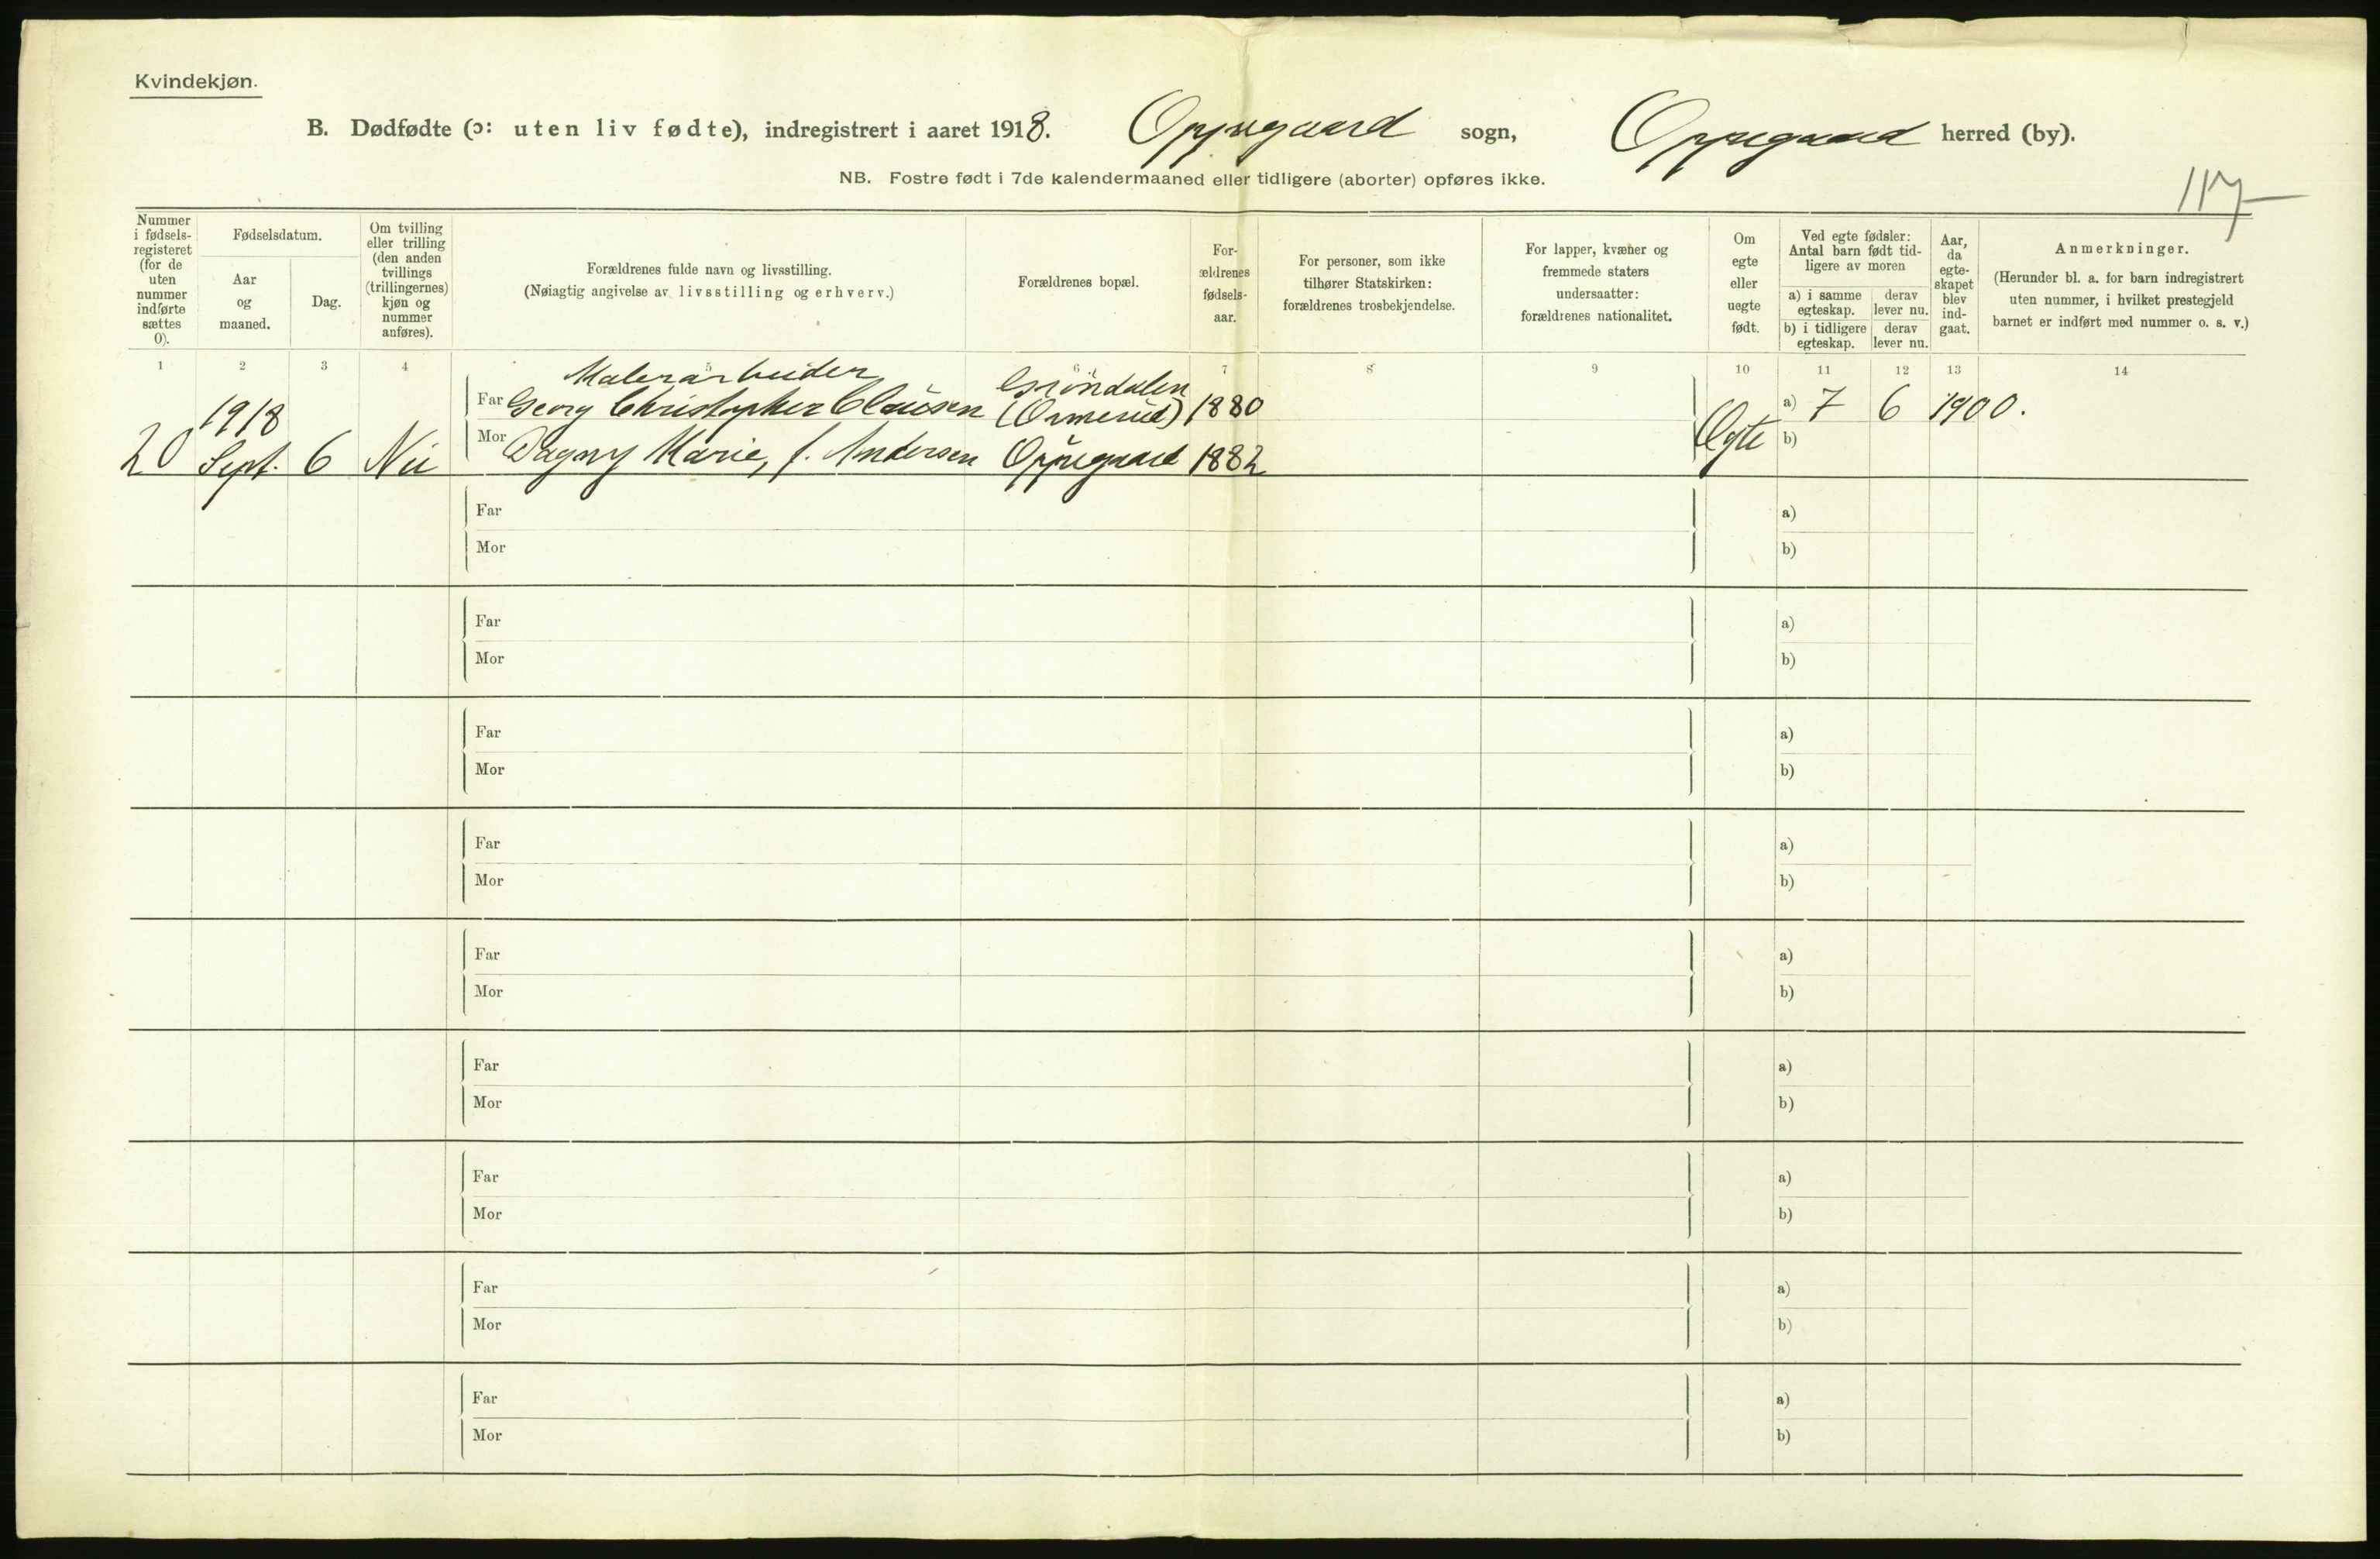 Kvindekjøn.
B. Dødfødte (ɔ: uten liv fødte), indregistrert i aaret 1918. Oppegaard sogn, Oppegaard herred (by).
NB. Fostre født i 7de kalendermaaned eller tidligere (aborter) opføres ikke.
117
Nummer
i fødsels-
registeret
(for de
uten
nummer
indførte
sættes
0).
Fødselsdatum.
Aar
og
maaned.
Dag.
Om tvilling
eller trilling
(den anden
tvillings
(trillingernes)
kjøn og
nummer
anføres).
Forældrenes fulde navn og livsstilling.
(Nøiagtig angivelse av livsstilling og erhverv.)
Forældrenes bopæl.
For-
ældrenes
fødsels-
aar.
For personer, som ikke
tilhører Statskirken:
forældrenes trosbekjendelse.
For lapper, kvæner og
fremmede staters
undersaatter:
forældrenes nationalitet.
Om
egte
eller
uegte
født.
Ved egte fødsler:
Antal barn født tid-
ligere av moren
a) i samme
egteskap.
derav
lever nu.
b) i tidligere
egteskap.
derav
lever nu.
Aar,
da
egte-
skapet
blev
ind-
gaat.
Anmerkninger.
(Herunder bl. a. for barn indregistrert
uten nummer, i hvilket prestegjeld
barnet er indført med nummer o. s. v.)
1 2 3 4 5 6 7 8 9 10 11 12 13 14
Malerarbeider Gröndalen
1918 Far Georg Christopher Clausen (Ormerud) 1880 a) 7 6 1900.
20 Sept. 6 Nei Mor Dagny Marie, f. Andersen Oppegaard 1882 Egte b)
Far a)
Mor b)
Far a)
Mor b)
Far a)
Mor b)
Far a)
Mor b)
Far a)
Mor b)
Far a)
Mor b)
Far a)
Mor b)
Far a)
Mor b)
Far a)
Mor b)